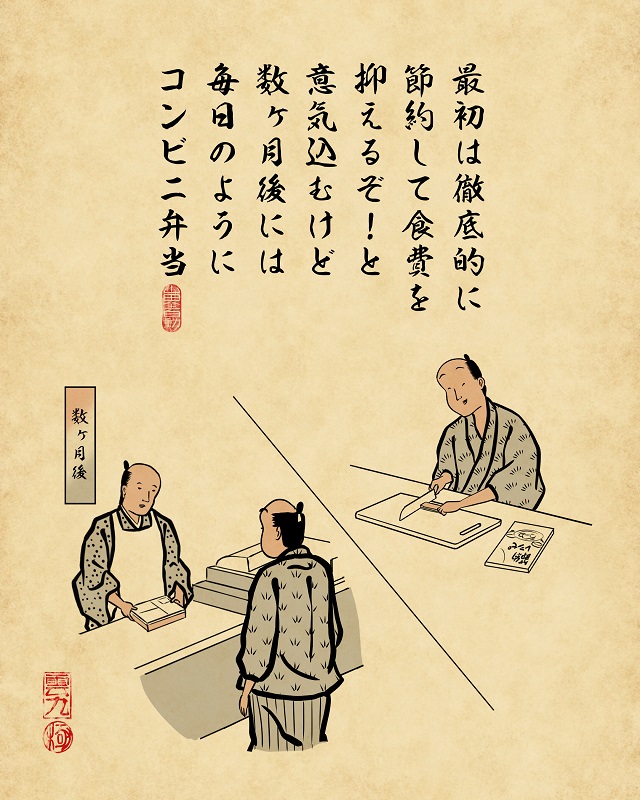 最初は徹底的に
節約して食費を
抑えるぞ！と
意気込むけど
数ヶ月後には
毎日のように
コンビニ弁当
数ヶ月後
節約